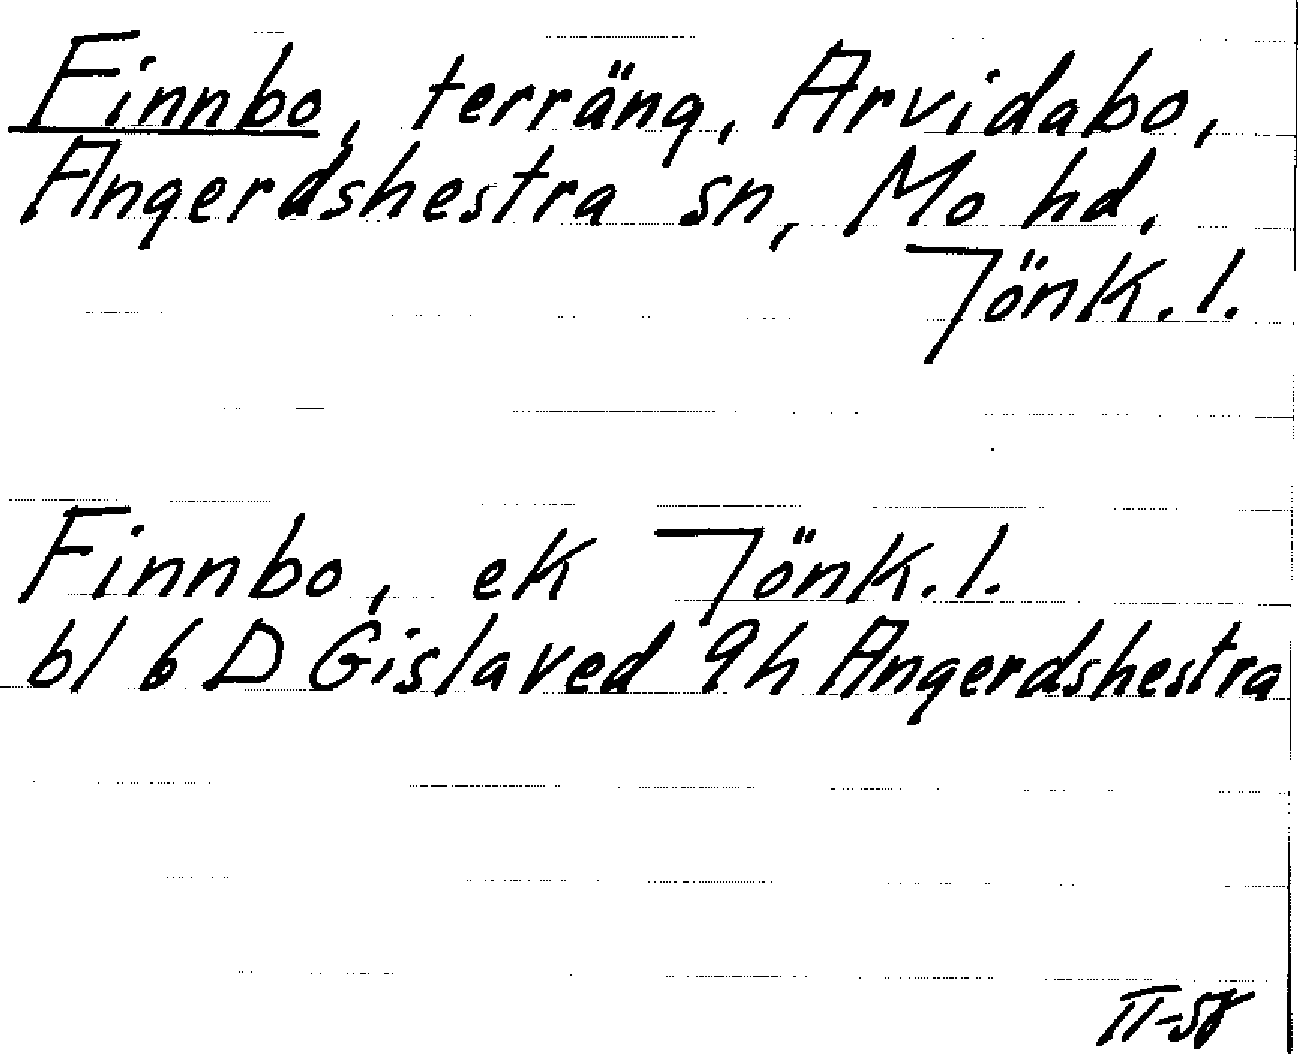 Finnbo, terräng, Arvidabo,
Angerdshestra sn, Mo hd,
Jönk. l.
Finnbo, ek Jönk. l.
bl 6 D Gislaved 9h Angerdshestra
II-58